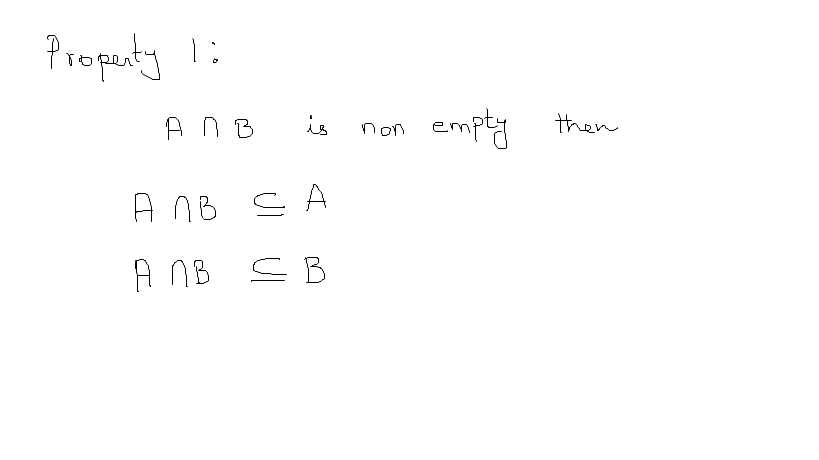 Property 1:
A ∩ B is non empty then
A ∩ B ⊆ A
A ∩ B ⊆ B